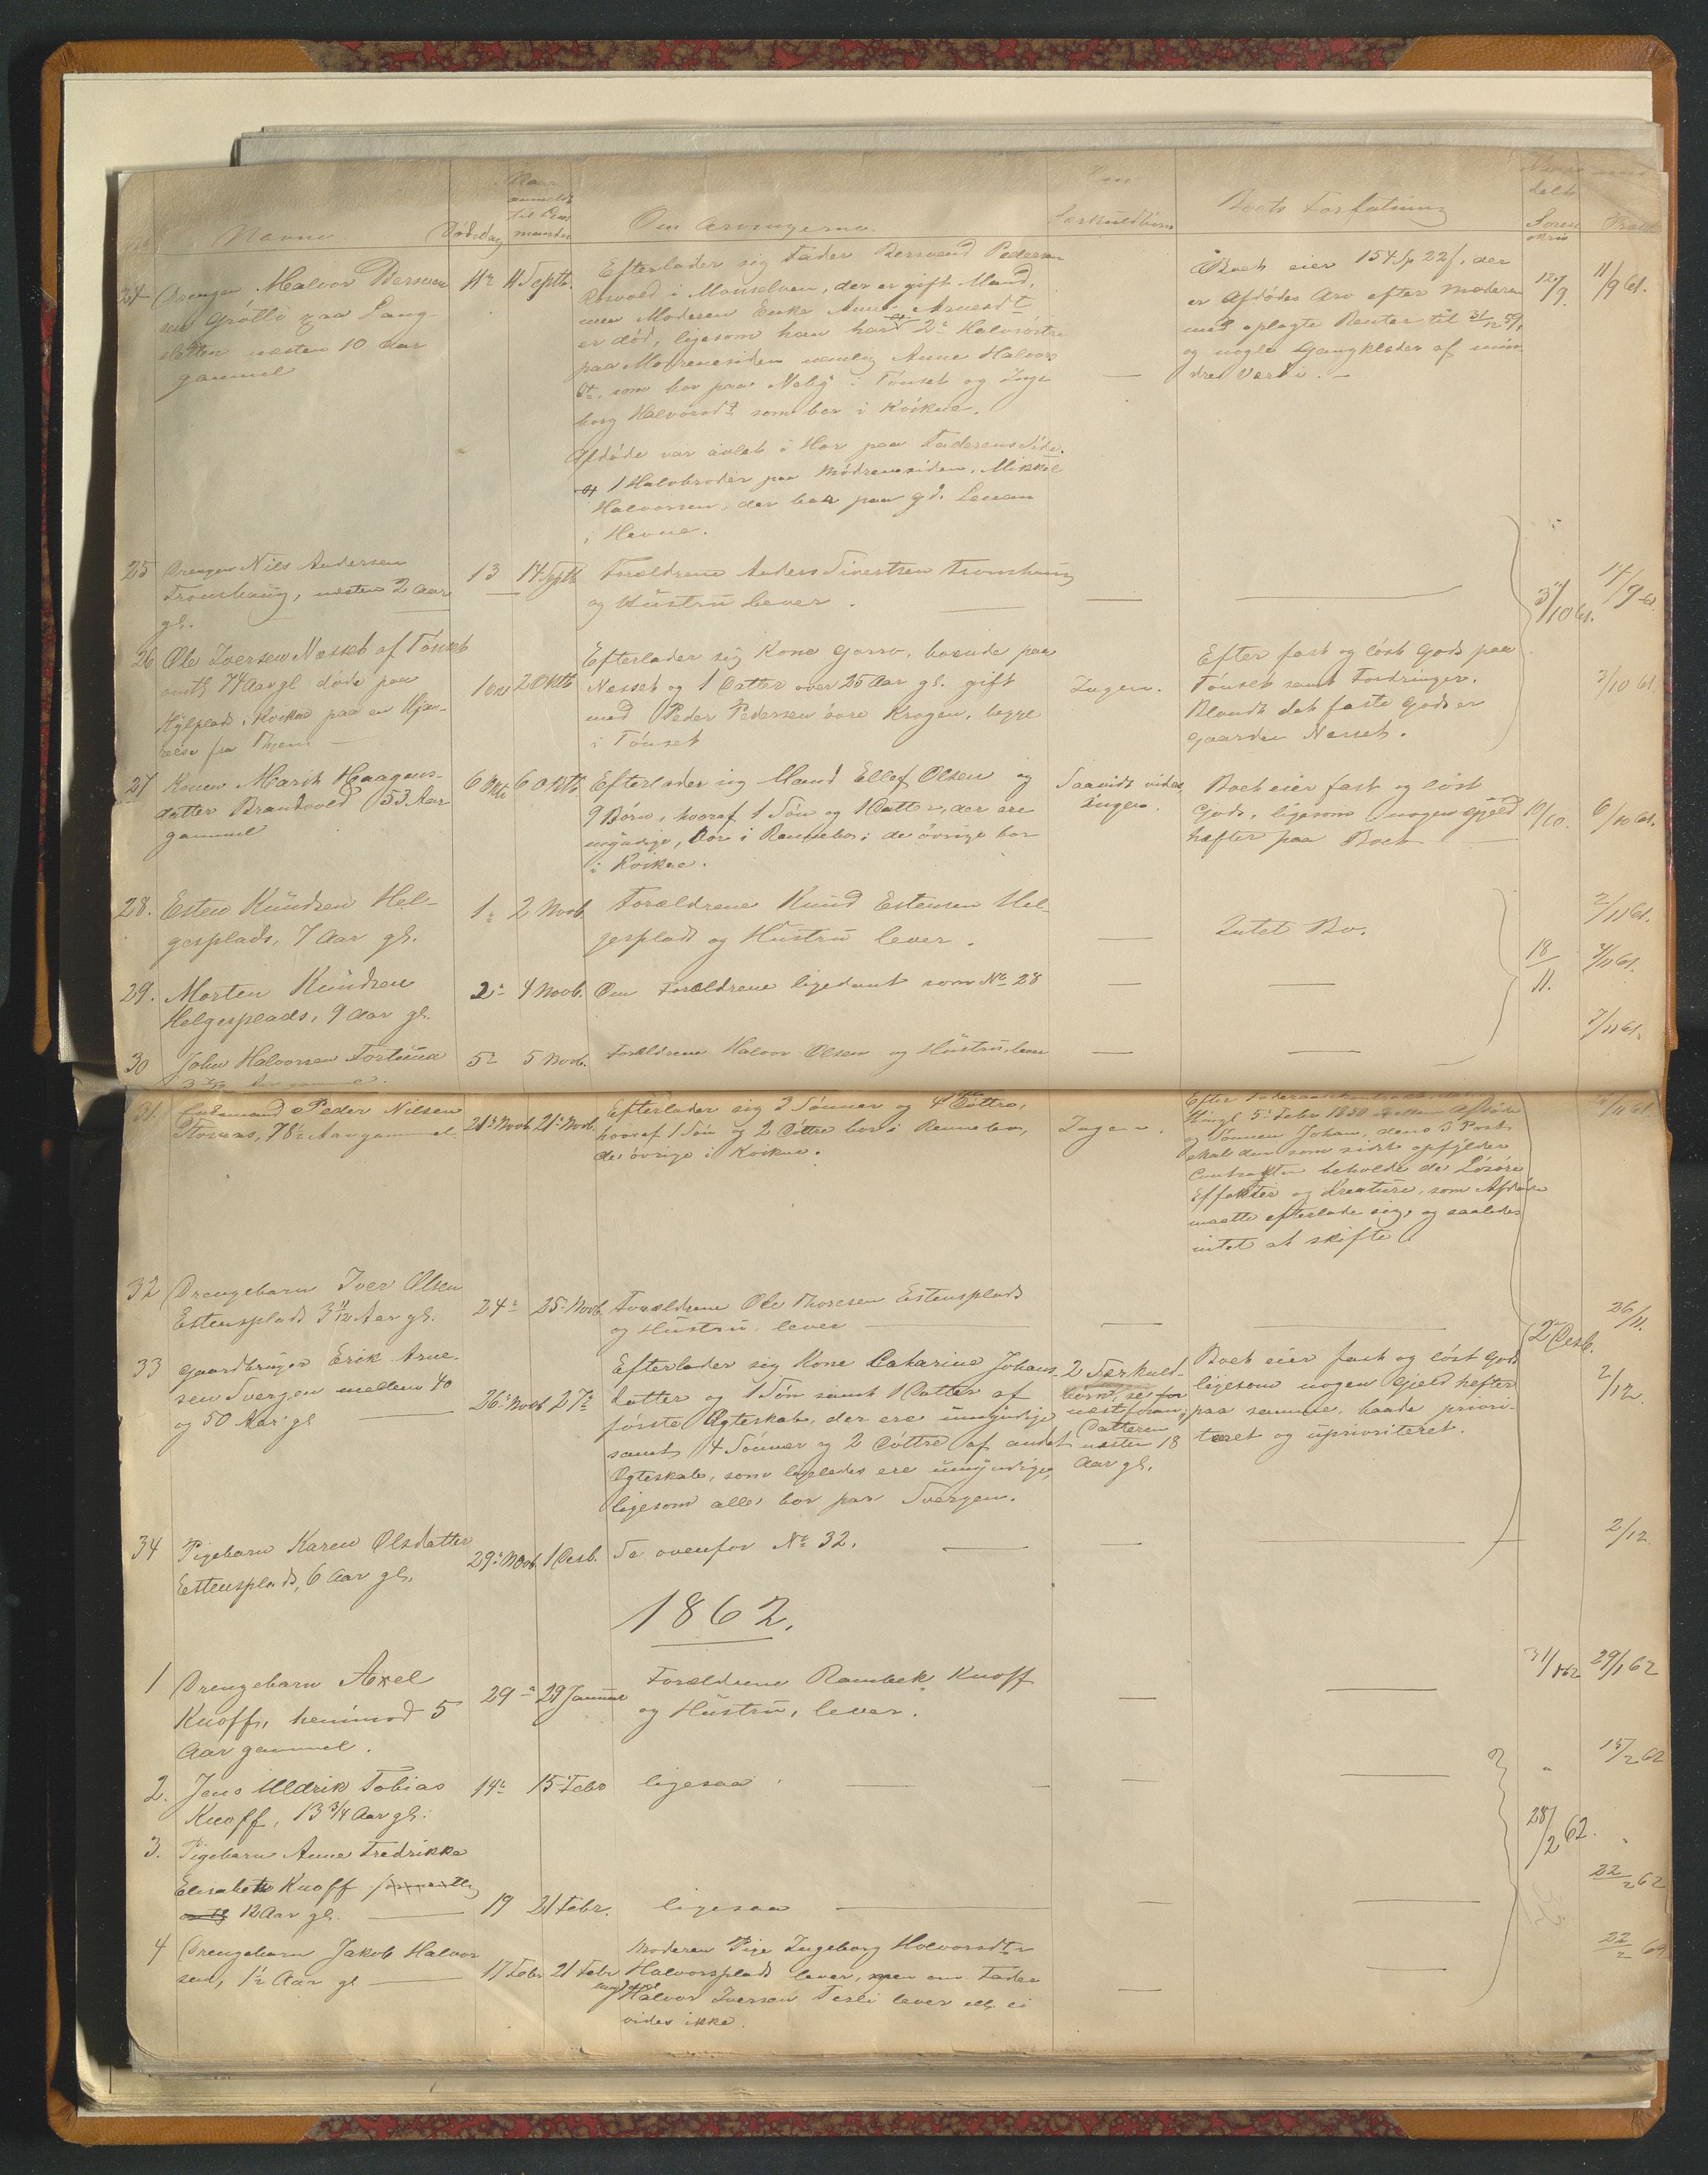 Navne
Dødsdag
anmeldt
til Lens
manden
Om Arvingerne.
Om
Særkuldbørn
Boets Forfatning
24 Drengen Halvor Bersven
sen Grøtli paa Lang
sletten næsten 10 Aar
gammel
4de 11 Septb.
Efterlader sig Fader Bersvend Pedersen
i Maaselven, der er gift Mand,
men Moderen Enke Anne Arnesdtr
er død, ligesom han har 2de Halvsøstre
paa Moderenesiden nemlig Anne Halvors
dtr, som bor paa Neby i Tønset og Inge
borg Halvorsdtr som bor i Kvikne.
Afdøde var avlet i Hor paa Faderens Side.
1 Halvbroder paa Mødrenesiden, Mikkel
Halvorsen, der boer paa gd. Leman
i Hevne.
Boet eier 154 Sp 22 s, der
er Afdødes Arv efter Moderen
med oplagte Renter til 31/12 59,
og nogle Gangklæder af min-
dre Værdi.
12/9
11/9 61.
25 Drengen Nils Andersen
Tronshaug, næsten 2 Aar
gl.
13 14 Septb
Forældrene Anders Sivertsen Tronshaug
og Hustru lever.
14/9 61.
26 Ole Iversen Næsset af Tønset
omtr 74 Aar gl. døde paa
i Kvikne paa en Hjem-
reise fra Thjem
1 Okt 2 Oktb
Efterlader sig Kone Goro, boende paa
Næsset og 1 Datter over 25 Aar gl. gift
med Peder Pedersen øvre Krogen, begge
i Tønset
Ingen.
Efter fast og løst Gods paa
Tønset samt Fordringer.
Blandt det faste Gods er
Gaarden Næsset.
3/10 61.
3/10 61.
27 Konen Marit Haagens-
datter Brandvold 53 Aar
gammel
6 Okt 6 Oktb
Efterlader sig Mand Ellef Olsen og
9 Børn, hvoraf 1 Søn og 1 Datter, der ere
myndige, bor i Rennebo; de øvrige bor
i Kvikne.
Saavidt vides
Ingen.
Boet eier fast og løst
Gods, ligesom nogen Gjeld
hefter paa Boet
10/10.
6/10 61.
28. Esten Knudsen Hel-
gesplads, 7 Aar gl.
1ste 2 Novb
Forældrene Knud Estensen Hel-
gesplads og Hustru lever.
Intet Bo.
2/11 61.
29. Morten Knudsen
Helgesplads, 9 Aar gl.
2de 4 Novb.
Om Forældrene ligedant som No 28
18
11.
4/11 61.
30 John Halvorsen Fortuna
Aar gammel.
5te 5 Novb.
Forældrene Halvor Olsen og Hustru, lever
7/11 61.
31. Enkemand Peder Nilsen
Stornæs, 78 1/2 Aar gammel
21de Novb 21de Novb.
Efterlader sig 3 Sønner og 4 Døttre,
hvoraf 1 Søn og 2 Døttre bor i Rennebo,
de øvrige i Kvikne.
Ingen.
Efter
Thingl. 5te Febr 1850 mellem Afdøde
og Sønnen Johan, dens 3 Post,
skal den som sidst opfylder
Contrakten beholde de Løsøre
Effekter og Kreature, som Afdøde
maatte efterlade sig, og saaledes
intet at skifte.
32 Drengebarn Iver Olsen
Estensplads 3 11/12 Aar gl.
24de 25de Novb.
Forældrene Ole Thoresen Estensplads
og Hustru lever
2de Desb.
26/11.
33 Gaardbruger Erik Arne-
sen Svergen mellem 40
og 50 Aar gl
26de Novb 27de
Efterlader sig Kone Catharine Johans-
datter og 1 Søn samt 1 Datter af
første Ægteskab, der ere umyndige
samt 4 Sønner og 2 Døttre af andet
Ægteskab, som ligeledes ere umyndige,
ligesom alle bor paa Svergen.
2 Særkuld-
børn, se for
næstforan;
Datteren
næsten 18
Aar gl.
Boet eier fast og løst Gods
ligesom nogen Gjeld hefter
paa samme, baade priori-
teret og uprioriteret.
2/12.
34 Pigebarn Karen Olsdatter
Estensplads, 6 Aar gl.
29de Novb. 1 Desb.
Se ovenfor No 32.
2/12
1862.
1 Drengebarn Axel
Knoff, henimod 5
Aar gammel.
29de 29 Januar
Forældrene Rambek Knoff
og Hustru, lever.
31/1 62
29/1 62
2. Jens Uldrik Tobias
Knoff, 13 3/4 Aar gl.
14de 15 Febr
ligesaa
15/2 62
3. Pigebarn Anne Fredrikke
Elisabeth Knoff
12 Aar gl.
19 21 Febr.
ligesaa
28/2 62.
22/2 62
4 Drengebarn Jakob Halvor
sen, 1 1/2 Aar gl
17 Febr 21 Febr
Moderen Pige Ingeborg Halvorsdtr
Halvorsplads lever, men om Fader
Halvor Iversen Tesli lever ell. ei
vides ikke.
22/2 62